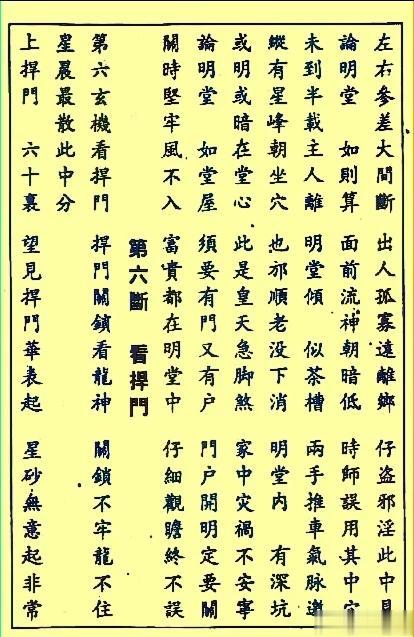 左右參差大間斷 出人孤寡遠離鄉 仔盜邪淫此中見
論明堂 如則算 面前流神朝暗低 時師誤用其中穴
未到半載主人離 明堂傾 似茶槽 兩手推車氣脉
縱有星峰朝坐穴 也邪順老没下消 明堂內 有深坑
或明或暗在堂心 此是皇天急脚煞 家中灾禍不安寧
論明堂 如堂屋 須要有門又有户 門户開明定要關
關時堅牢風不入 富貴都在明堂中 仔細觀瞻終不誤
第六斷 看捍門
第六玄機看捍門 捍門關鎖看龍神 關鎖不牢龍不住
星晨最散此中分
上捍門 六十裏 望見捍門華表起 星砂無意起非常